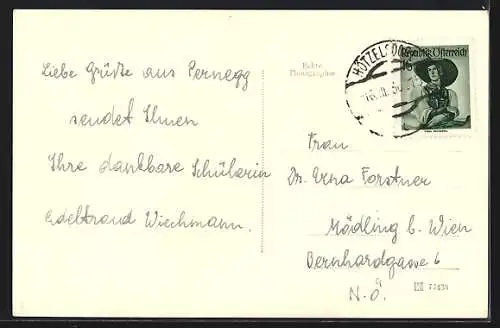 Liebe Grüße aus Pernegg
sendet Ihnen
Ihre dankbare Schülerin
Edeltraud Wiechmann.
Echte
Photographie
HÖTZELSDORF
Republik Österreich
Frau
Dr. Erna Forstner
Mödling b. Wien
Bernhardgasse 6
N.Ö.